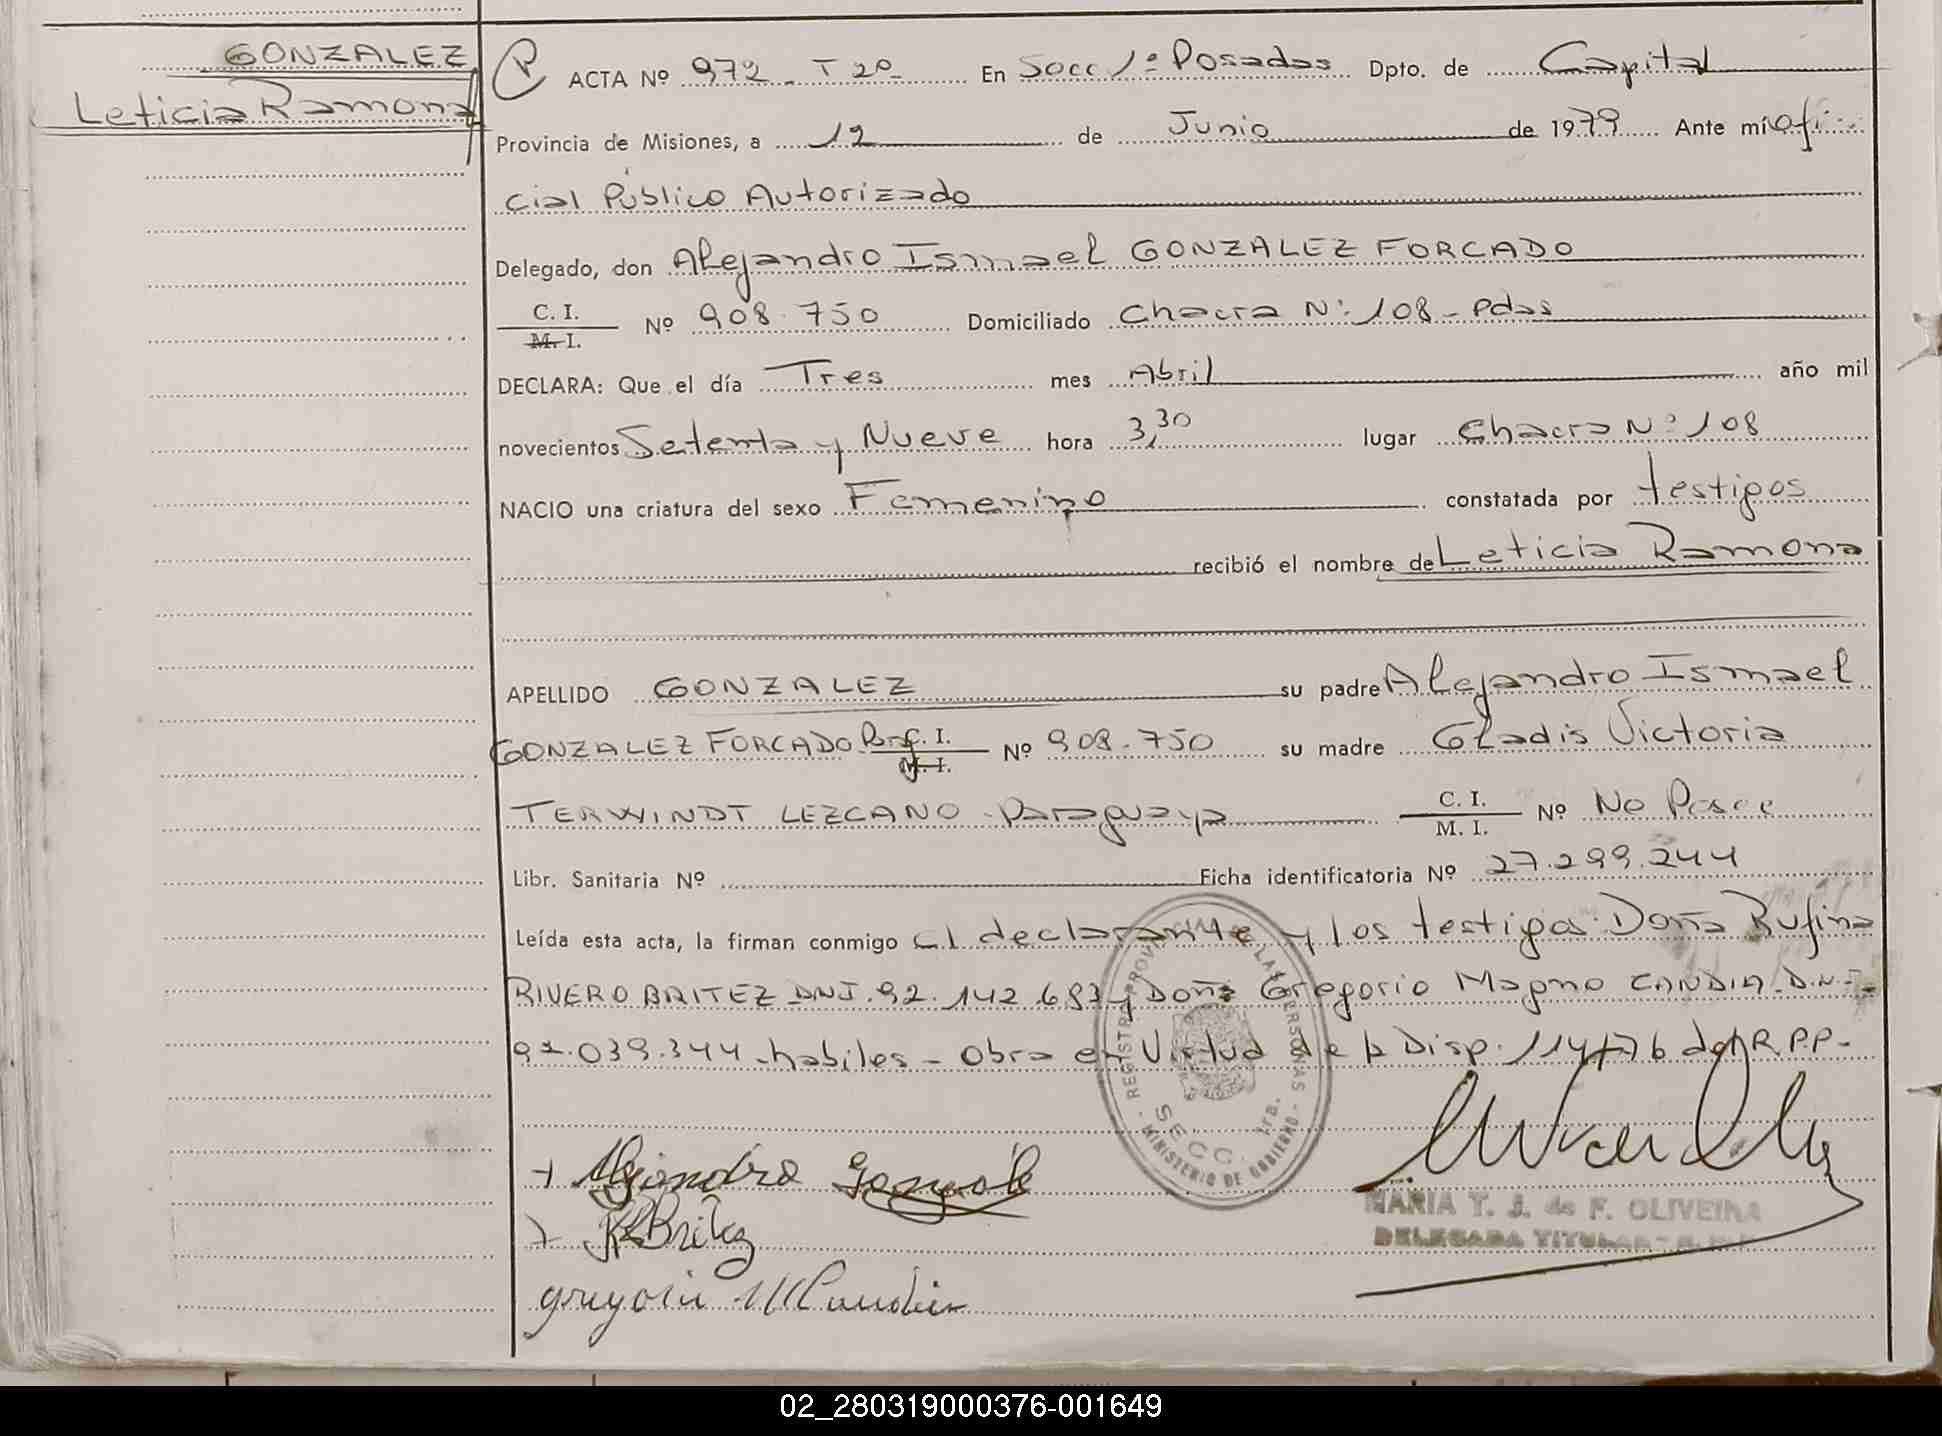 GONZALEZ
Leticia Ramona
P ACTA Nº 972 - T 2º - En Secc 1ª Posadas Dpto. de Capital
Provincia de Misiones, a 12 de Junio de 1979 Ante mí ofi
cial Público Autorizado
Delegado, don Alejandro Ismael GONZALEZ FORCADO
C. I.
M. I. Nº 908.750 Domiciliado Chacra Nº 108 - Pdas
DECLARA: Que el día Tres mes Abril año mil
novecientos Setenta y Nueve hora 3,30 lugar Chacra Nº 108
NACIO una criatura del sexo Femenino constatada por testigos
recibió el nombre de Leticia Ramona
APELLIDO GONZALEZ su padre Alejandro Ismael
GONZALEZ FORCADO C. I.
M. I. Nº 908.750 su madre Gladis Victoria
TERWINDT LEZCANO - Paraguaya C. I.
M. I. Nº No Posee
Libr. Sanitaria Nº Ficha identificatoria Nº 27.299.244
Leída esta acta, la firman conmigo el declarante y los testigos: Doña Rufina
RIVERO BRITEZ DNI. 92.142.683 y Doña Gregorio Magno CANDIA. D.N.I.
92.039.344 - habiles - Obra en Virtud de la Disp. 114/76 del R.P.P.-
REGISTRO PROVINCIAL DE LAS PERSONAS - MINISTERIO DE GOBIERNO -
SECC. 1ra.
+ Alejandro Gonzalez
+ R Britez
MARIA T. J. de F. OLIVEIRA
DELEGADA TITULAR
gregorio M Candia
02_280319000376-001649